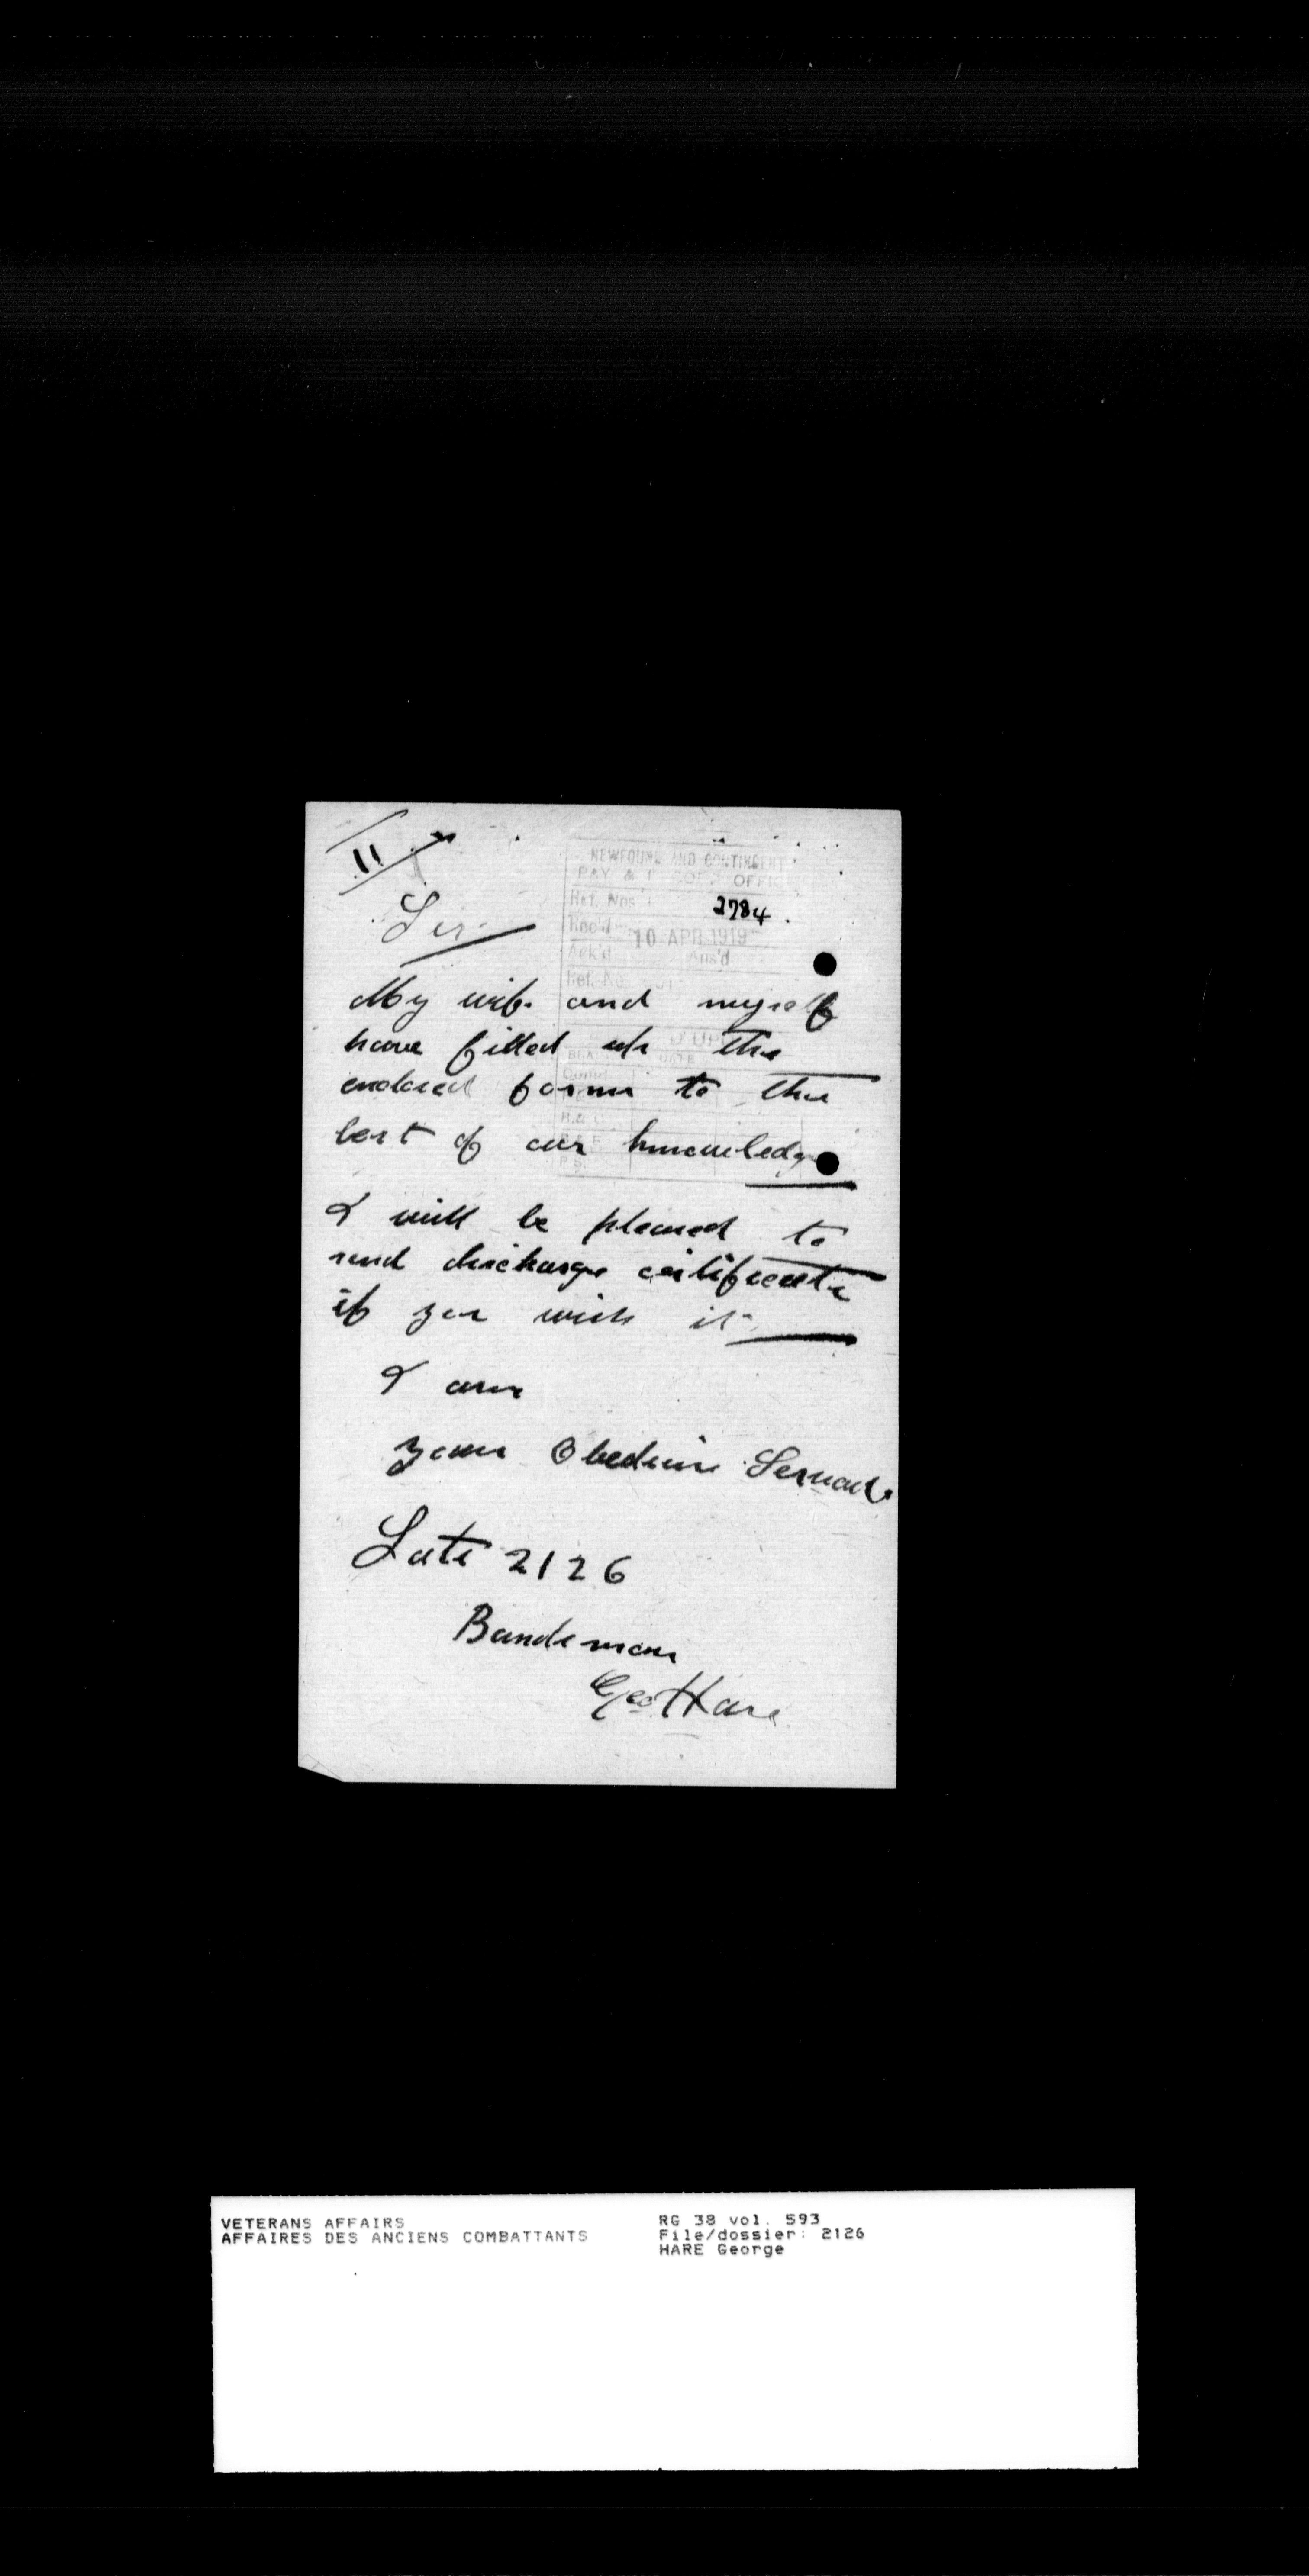 11
NEWFOUNDLAND CONTINGENT
PAY & RECORD OFFICE
Ref. Nos 2784
Rec'd 10 APR 1919
Ack'd Ans'd
Ref. No
Sir
My wife and myself
have filled up the
enclosed forms to the
best of our knowledge
I will be pleased to
send discharge certificate
if you wish it
I am
your Obedient Servant
Late 2126
Bandsman
Geo Hare
VETERANS AFFAIRS
AFFAIRES DES ANCIENS COMBATTANTS
RG 38 vol. 593
File/dossier: 2126
HARE George